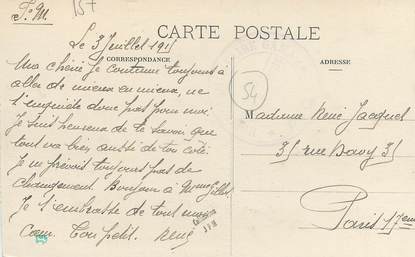 F. M.
157
CARTE POSTALE
Le 3 Juillet 191
CORRESPONDANCE
ADRESSE
54
Ma chérie Je continue toujours à
aller de mieux en mieux, ne
t'inquiète donc pas pour moi.
Je suis heureux de te savoir que
tout va bien aussi de ton coté.
Je ne prévois toujours pas de
changement. Bonjour à Mme Gillet.
Je t'embrasse de tout mon
cœur. Ton petit. René
Madame René Jacquet
35 rue Davy 35
Paris 17eme